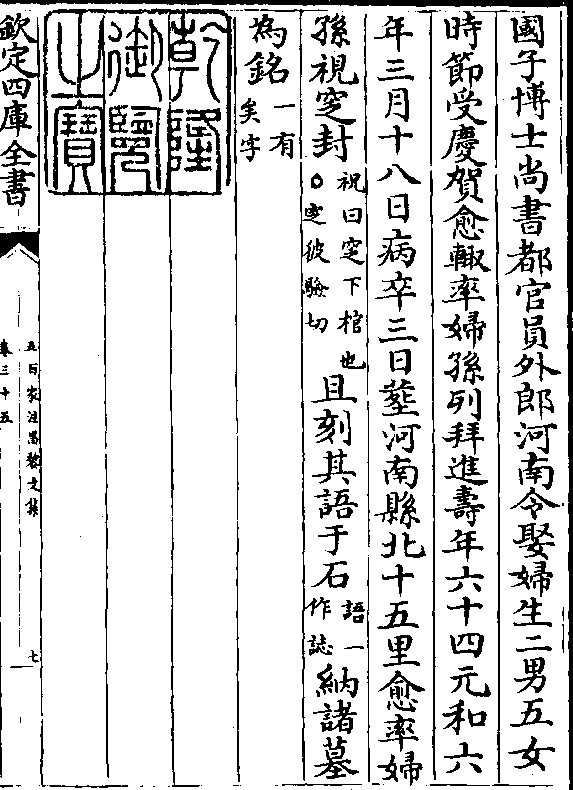 國子博士尚書都官員外郎河南令娶婦生二男五女
時節受慶賀愈輙率婦孫列拜進壽年六十四元和六
年三月十八日病卒三日塟河南縣北十五里愈率婦
孫視窆封祝曰窆下棺也○窆彼驗切且刻其語于石語一作誌納諸墓
為銘一有矣字
乾隆御覽之寶
欽定四庫全書
五百家注昌黎文集
卷三十五
七